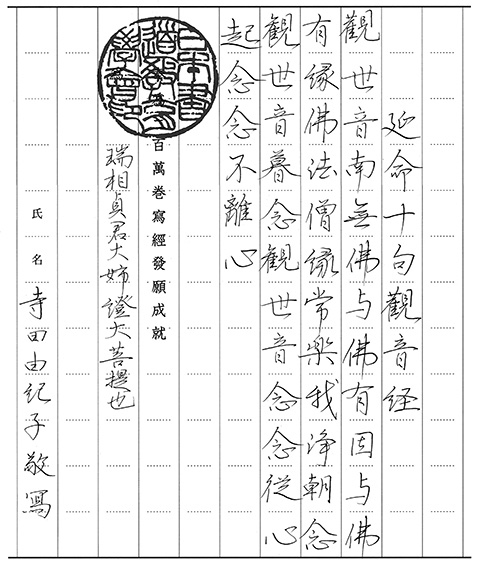 延命十句觀音経
觀世音南無佛与佛有因与佛
有縁佛法僧縁常楽我浄朝念
觀世音暮念觀世音念念從心
起念念不離心
百萬巻寫經發願成就
瑞相貞君大姉證大菩提也
氏名 寺田由紀子敬寫